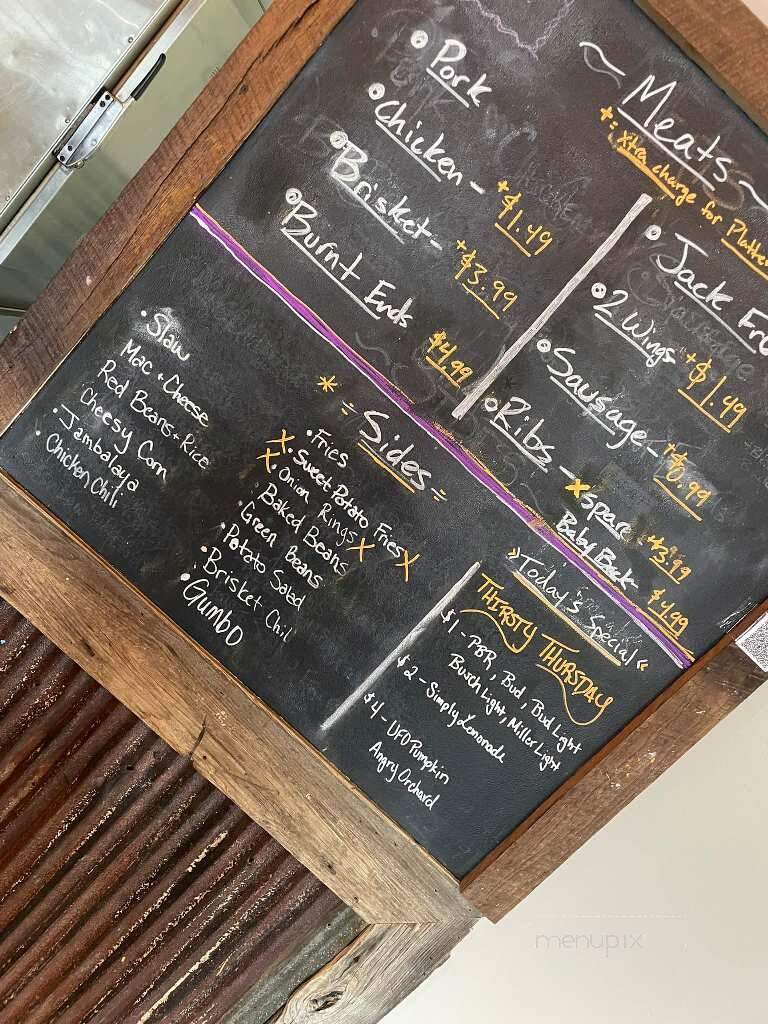 ~ Meats ~
+ = xtra charge for
Pork
Chicken - +$1.49
Brisket - +$3.99
Burnt Ends $4.99
Jack
2 Wings +$1.49
Sausage - +0.99
Ribs - x spare +3.99
Baby Back $4.99
* = Sides =
Slaw
Mac + Cheese
Red Beans + Rice
Cheesy Corn
Jambalaya
Chicken Chili
Fries
X Sweet Potato Fries X
X Onion Rings X
Baked Beans
Green Beans
Potato Salad
Brisket Chili
Gumbo
» Today's Special «
THIRSTY THURSDAY
$1 - PBR, Bud, Bud Light
Busch Light, Miller Light
$2 - Simply Lemonade
$4 - UFO Pumpkin
Angry Orchard
menupix